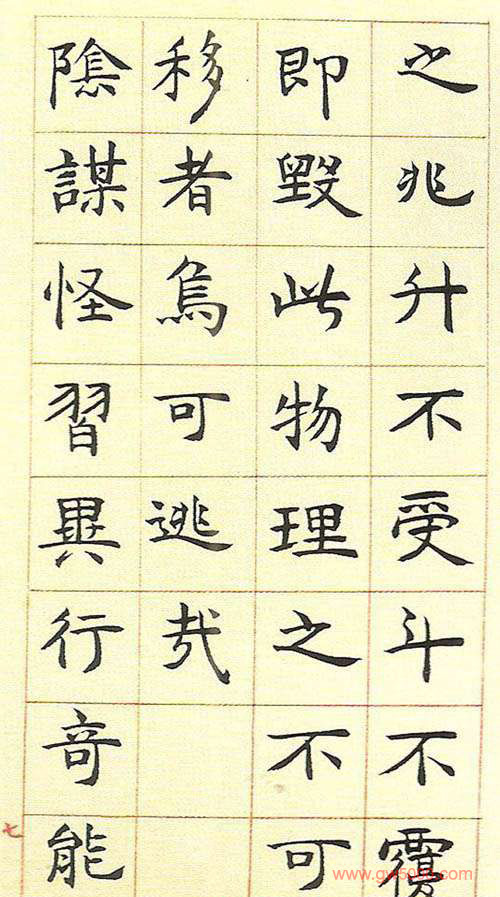 之兆升不受斗不覆
即毀此物理之不可
移者烏可逃哉
陰謀怪習異行奇能
七